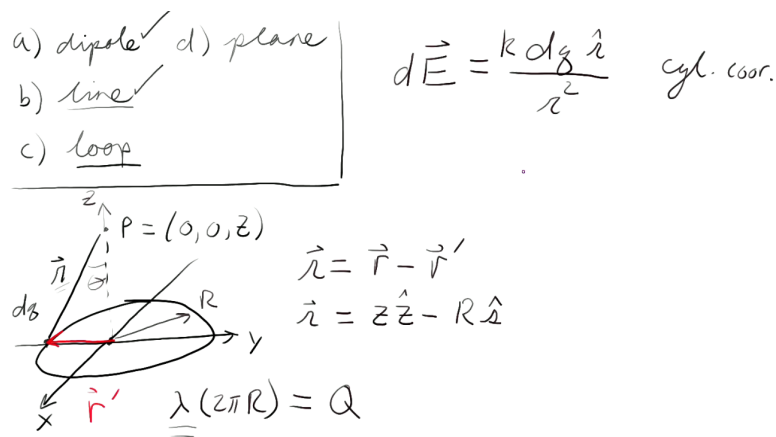 a) dipole ✓ d) plane
b) line ✓
c) loop
dE⃗ = k dq 𝓇̂ / 𝓇² cyl. coor.
z
P = (0,0,z)
𝓇⃗
θ
dq
R
y
x
r⃗ ′
𝓇⃗ = r⃗ − r⃗ ′
𝓇⃗ = zẑ − Rŝ
λ(2πR) = Q